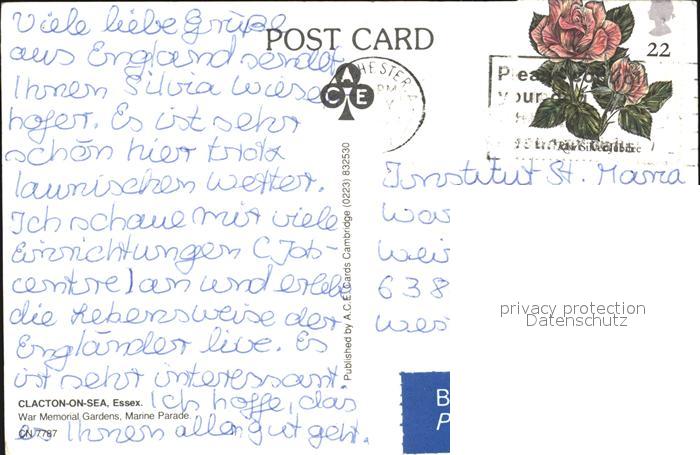 Viele liebe Grüße
aus England sendet
Ihnen Silvia Wiese
hofer. Es ist sehr
schön hier trotz
launischen Wetter.
Ich schaue mir viele
Einrichtungen (Job-
centre) an und erlebe
die Lebensweise der
Engländer live. Es
ist sehr interessant.
Ich hoffe, das
es Ihnen allen gut geht.
CLACTON-ON-SEA, Essex.
War Memorial Gardens, Marine Parade.
CN 7787
POST CARD
ACE
Published by A.C.E. Cards Cambridge (0223) 832530
HESTER
PM
22
Please
your
Institut St. Maria
638
privacy protection
Datenschutz
B
P